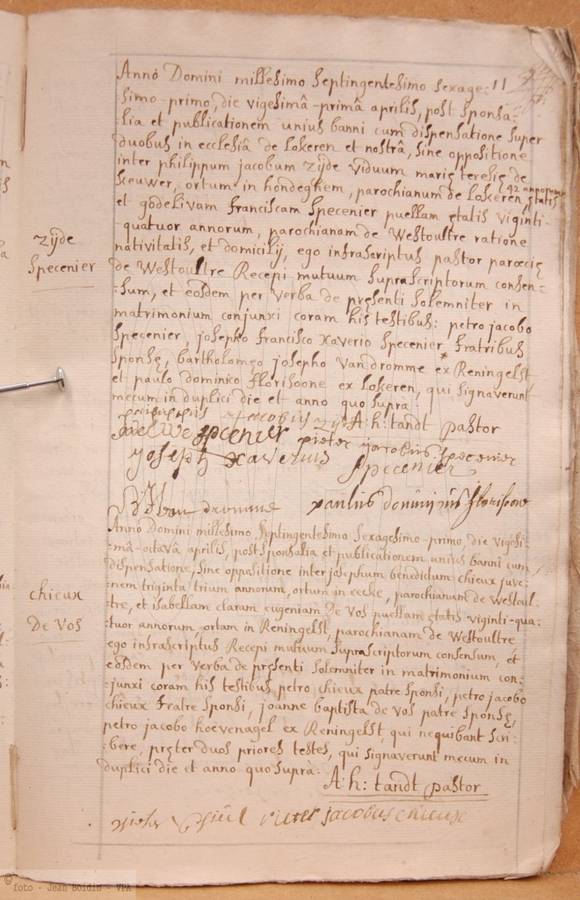 Anno Domini millesimo septingentesimo sexage: 11
simo-primo, die vigesimâ-primâ aprilis, post sponsa:
lia et publicationem unius banni cum dispensatione super
duobus in ecclesia de Lokeren et nostrâ, sine oppositione
inter philippum jacobum zyde viduum mariæ teresiæ de
sceuwer, ortum in hondeghem, parochianum de Lokeren, ętatis 42 annorum
et godelivam franciscam Specenier puellam ętatis viginti-
quatuor annorum, parochianam de Westoultre ratione
nativitatis, et domicilij, ego infrascriptus pastor parœcię
zyde
de Westoultre Recepi mutuum suprascriptorum consen=
Specenier
:sum, et eosdem per verba de pręsenti solemniter in
matrimonium conjunxi coram his testibus: petro jacobo
Specenier, josepho francisco xaverio Specenier fratribus
sponsę, bartholomęo josepho Vandromme ex Reningelst
et paulo dominico florisoone ex Lokeren, qui signaverunt
mecum in duplici die et anno quo suprà
philippus jacobus zyde A:h: tandt pastor
specenier pieter jacobus specenier
joseph xaverius specenier
BJ Van dromme paulus dominicus florisoone
Anno Domini millesimo septingentesimo sexagesimo-primo, die vigesi:
:mâ-octavâ aprilis, post sponsalia et publicationem unius banni cum
dispensatione, sine oppositione inter josephum benedictum chieux juve:
chieux
:nem triginta trium annorum, ortum in eecke, parochianum de Westoul:
:tre, et isabellam claram eugeniam De Vos puellam ętatis viginti-qua:
De Vos
:tuor annorum ortam in Reningelst, parochianam de Westoultre
ego infrascriptus Recepi mutuum suprascriptorum consensum, et
eosdem per verba de pręsenti solemniter in matrimonium con:
:junxi coram his testibus petro chieux patre sponsi, petro jacobo
chieux fratre sponsi, joanne baptista de Vos patre sponsę,
petro jacobo hoevenagel ex Reningelst qui nequibant scri:
:bere, pręter duos priores testes, qui signaverunt mecum in
duplici die et anno quo suprà.
A:h: tandt pastor
pieter jacobus chieux
©foto - Jean Boidin - VPA